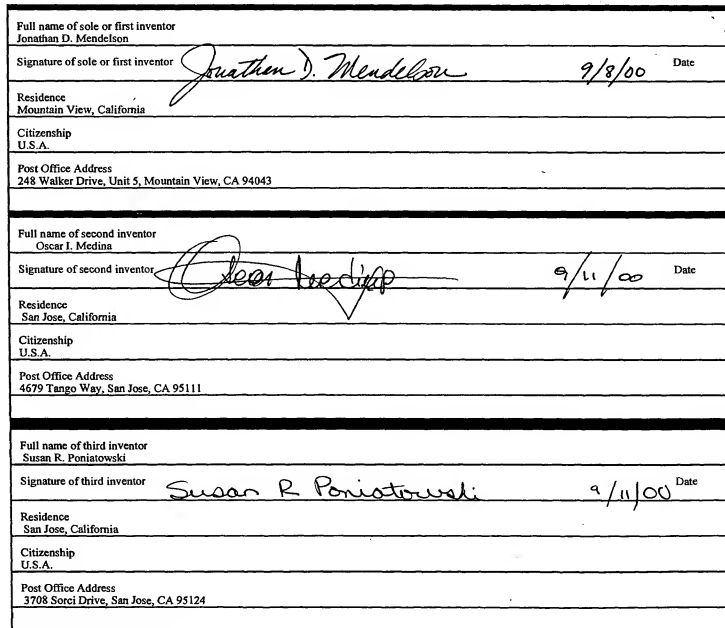 Full name of sole or first inventor
Jonathan D. Mendelson
Signature of sole or first inventor Jonathan D. Mendelson 9/8/00 Date
Residence
Mountain View, California
Citizenship
U.S.A.
Post Office Address
248 Walker Drive, Unit 5, Mountain View, CA 94043
Full name of second inventor
Oscar I. Medina
Signature of second inventor Oscar Medina 9/11/00 Date
Residence
San Jose, California
Citizenship
U.S.A.
Post Office Address
4679 Tango Way, San Jose, CA 95111
Full name of third inventor
Susan R. Poniatowski
Signature of third inventor Susan R Poniatowski 9/11/00 Date
Residence
San Jose, California
Citizenship
U.S.A.
Post Office Address
3708 Sorci Drive, San Jose, CA 95124